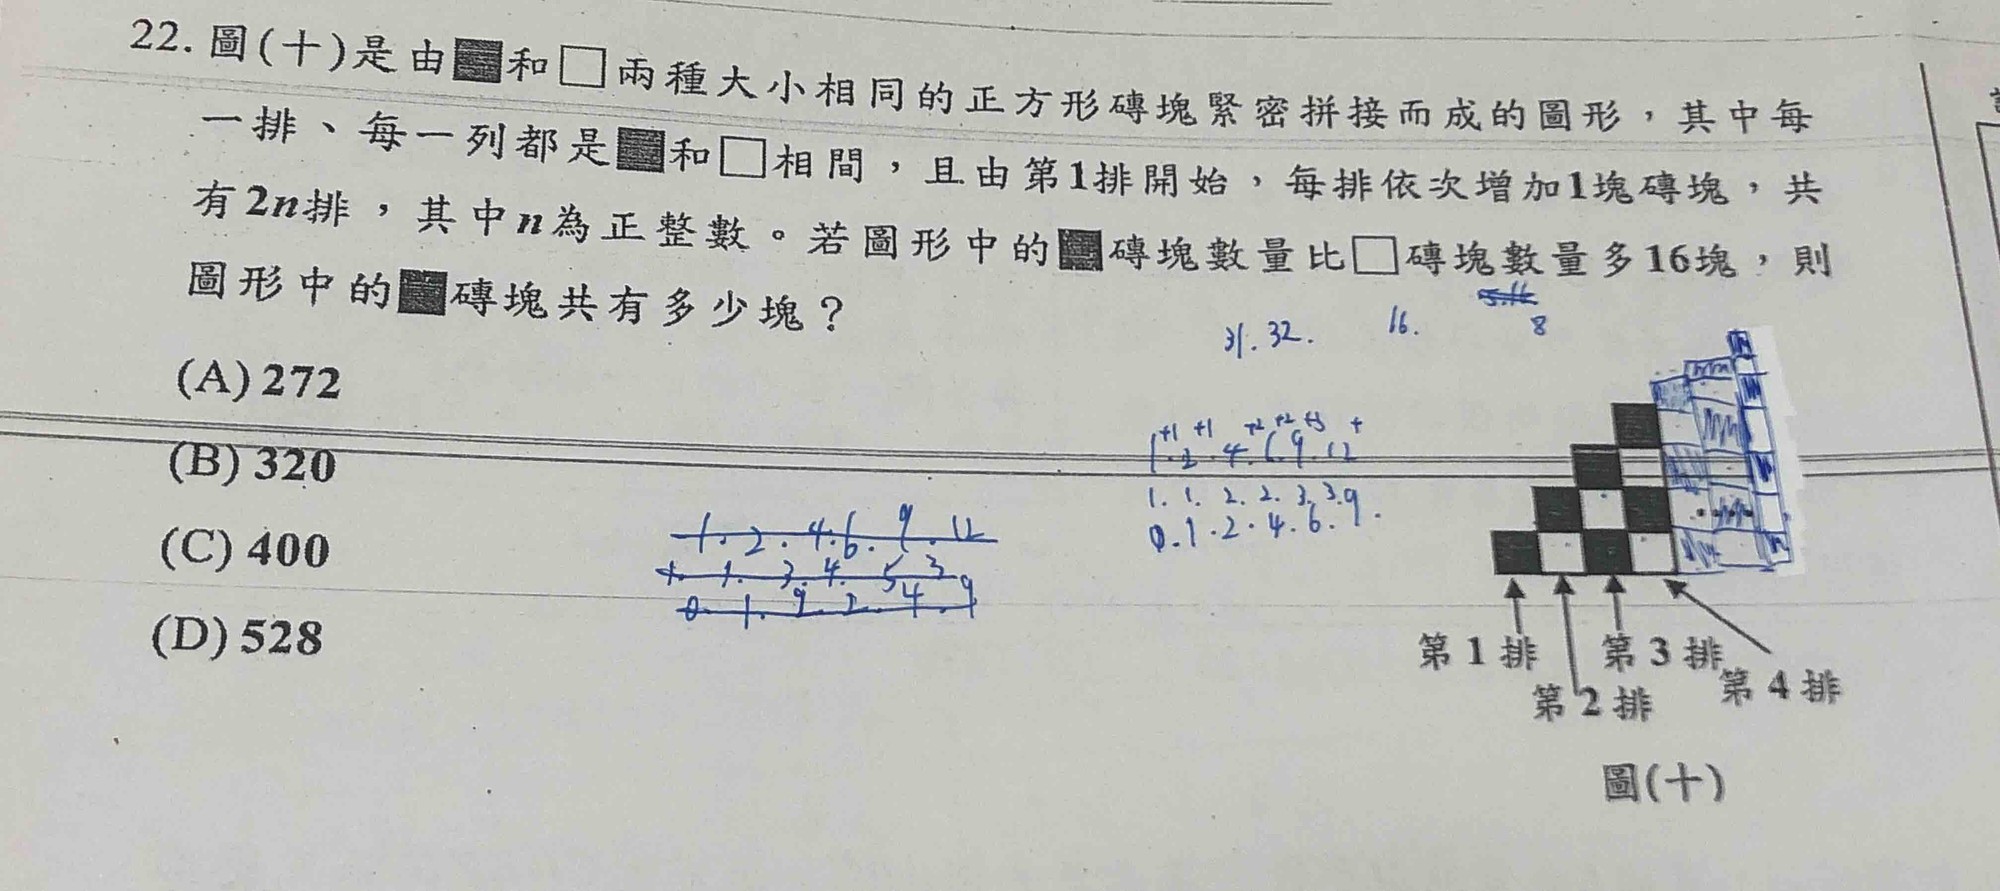 22. 圖(十)是由■和□兩種大小相同的正方形磚塊緊密拼接而成的圖形，其中每
一排、每一列都是■和□相間，且由第1排開始，每排依次增加1塊磚塊，共
有2n排，其中n為正整數。若圖形中的■磚塊數量比□磚塊數量多16塊，則
圖形中的■磚塊共有多少塊？
31. 32. 16. 8
(A) 272
(B) 320
(C) 400
(D) 528
+1 +1 +2 +2 +3 +
1. 2. 4. 6. 9. 12
1. 1. 2. 2. 3. 3. 9.
0. 1. 2. 4. 6. 9.
1. 2. 4. 6. 9. 12
1. 1. 3. 4. 5 3
0. 1. 9. 2. 4. 9
第1排
第2排
第3排
第4排
圖(十)